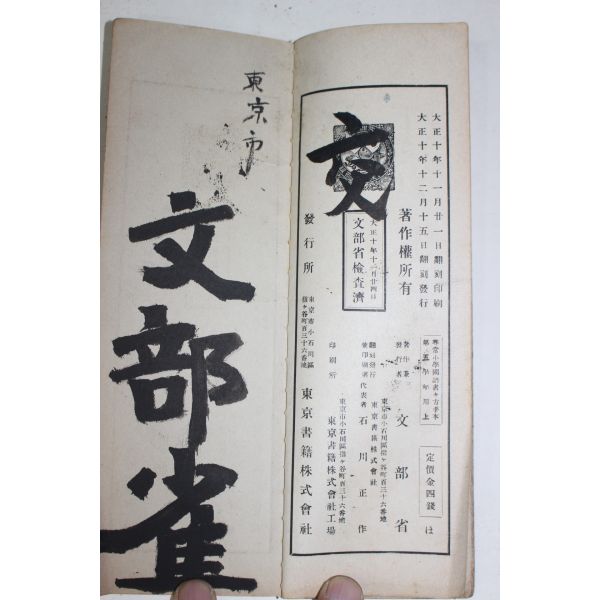 大正十年十一月廿一日翻刻印刷
大正十年十二月十五日翻刻發行
著作權所有
大正十年十二月廿四日
文部省檢査濟
發行所
東京市小石川區
指ヶ谷町百三十六番地
東京書籍株式會社
尋常小學國語書キ方手本
第五學年用上
定價金四錢
著作兼
發行者
文部省
翻刻發行
兼印刷者
東京市小石川區指ヶ谷町百三十六番地
東京書籍株式會社
代表者
石川正作
印刷所
東京市小石川區指ヶ谷町百三十六番地
東京書籍株式會社工場
東京市
文部雀